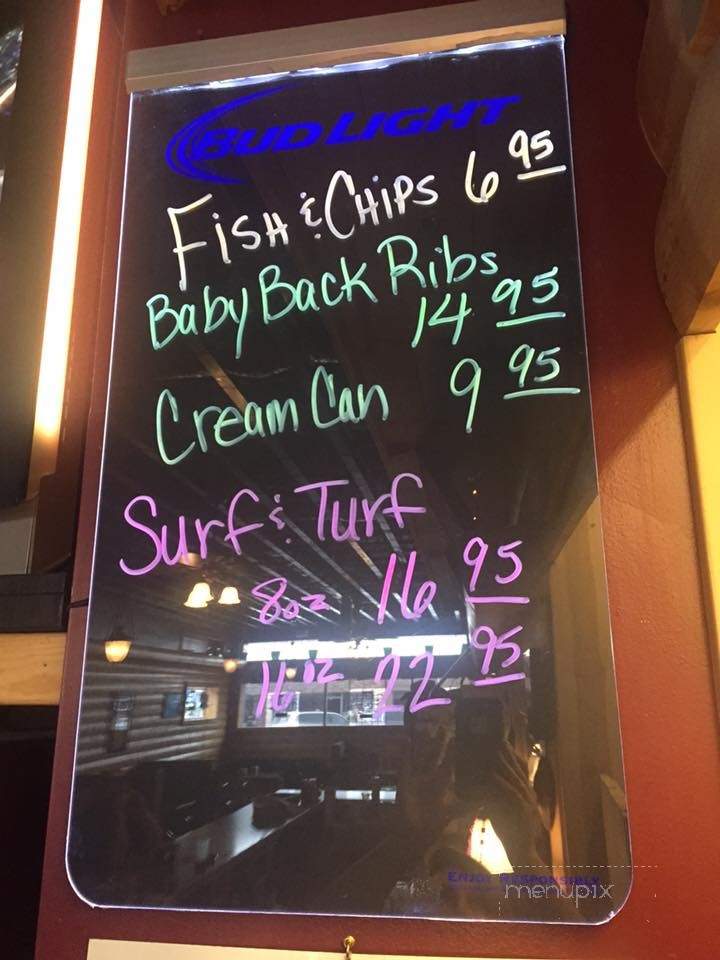 BUD LIGHT
FISH & CHIPS 6 95
Baby Back Ribs
14 95
Cream Can 9 95
Surf & Turf
8oz 16 95
16oz 22 95
ENJOY RESPONSIBLY
menupix